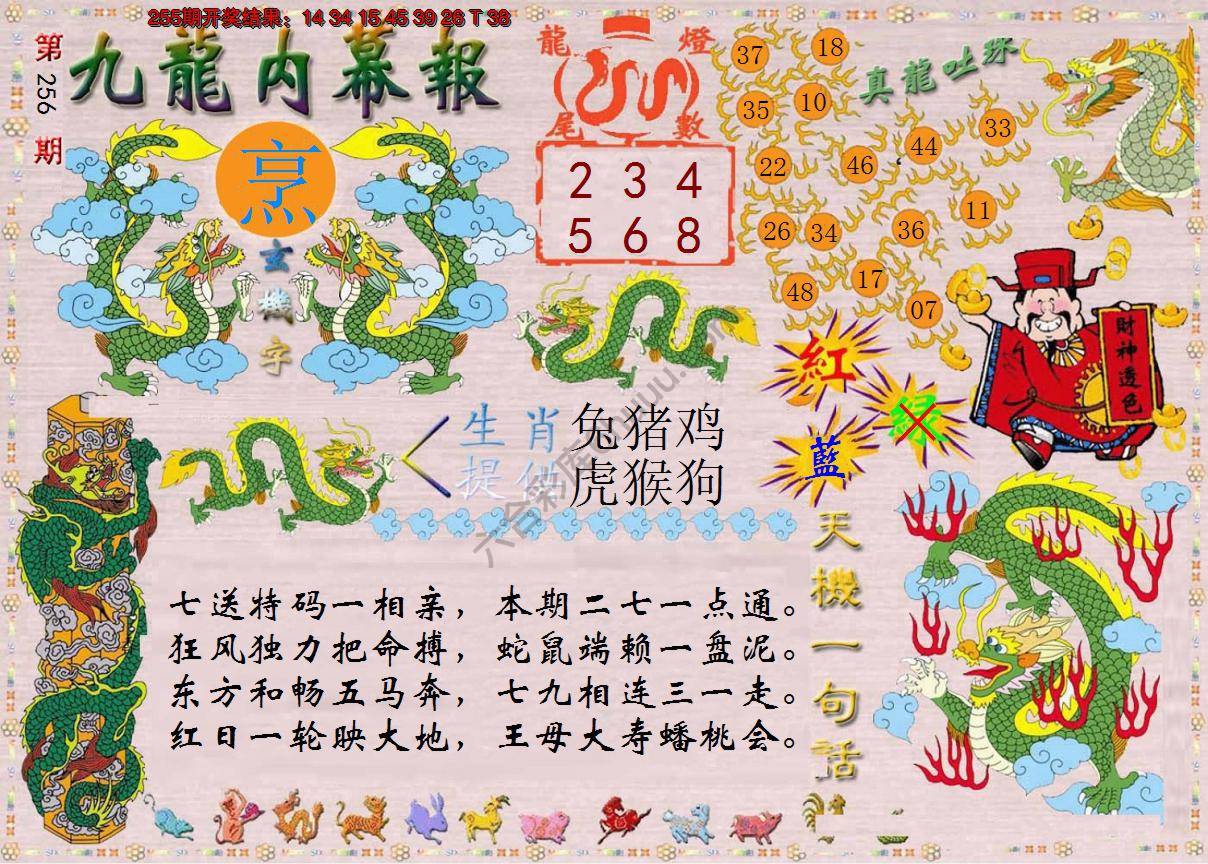 255期开奖结果：14 34 15.45 39 26 T 38
第256期
九龍内幕報
烹
玄機字
龍燈尾數
2 3 4
5 6 8
真龍吐珠
37 18
35 10
33
44
22 46
11
26 34 36
17
48 07
財神透色
紅
绿
藍
生肖
提供
兔猪鸡
虎猴狗
天機一句話
七送特码一相亲，本期二七一点通。
狂风独力把命搏，蛇鼠端赖一盘泥。
东方和畅五马奔，七九相连三一走。
红日一轮映大地，王母大寿蟠桃会。